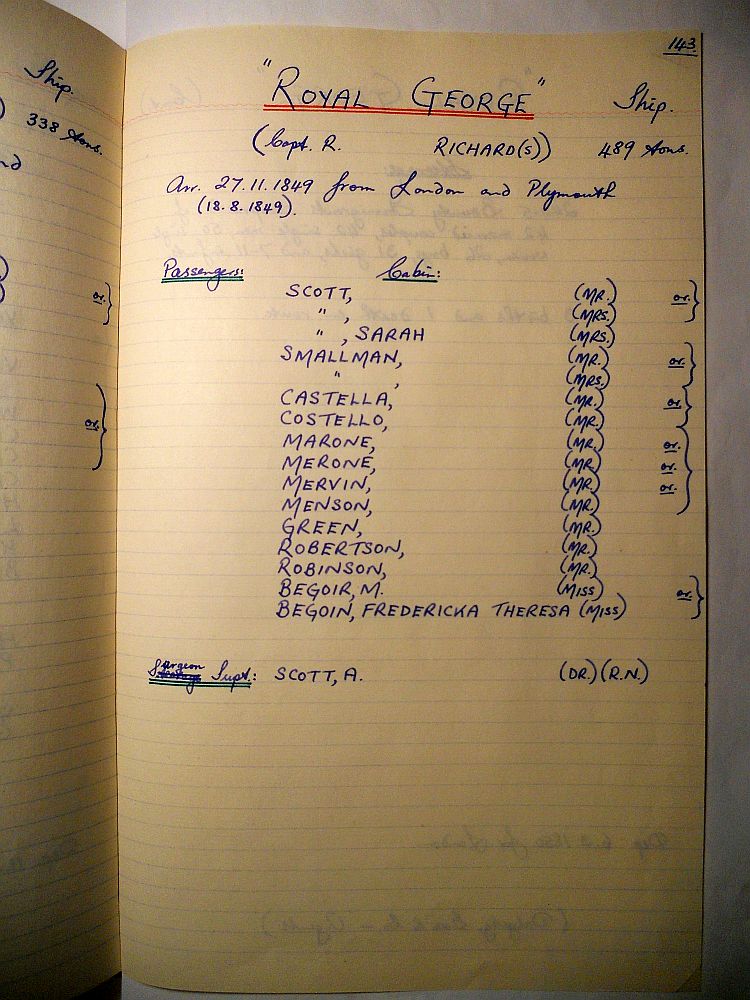 Ship.
338 tons.
143.
"ROYAL GEORGE" Ship.
(Capt. R. RICHARD(S)) 489 tons.
Arr. 27.11.1849 from London and Plymouth
(18.8.1849).
Passengers: Cabin:
SCOTT, (MR.) or.
" , (MRS.)
" , SARAH (MRS.)
SMALLMAN, (MR.) or.
" , (MRS.)
CASTELLA, (MR.) or.
COSTELLO, (MR.)
MARONE, (MR.) or.
MERONE, (MR.) or.
MERVIN, (MR.) or.
MENSON, (MR.)
GREEN, (MR.)
ROBERTSON, (MR.)
ROBINSON, (MR.)
BEGOIR, M. (MISS) or.
BEGOIN, FREDERICKA THERESA (MISS)
Surgeon Supt.: SCOTT, A. (DR.) (R.N.)
or.
or.